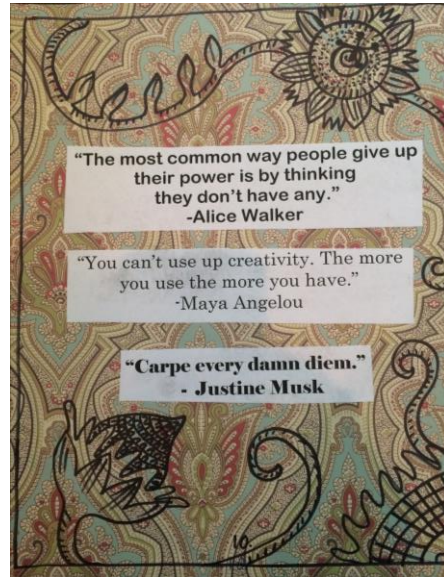 “The most common way people give up
their power is by thinking
they don’t have any.”
-Alice Walker
“You can’t use up creativity. The more
you use the more you have.”
-Maya Angelou
“Carpe every damn diem.”
- Justine Musk
10